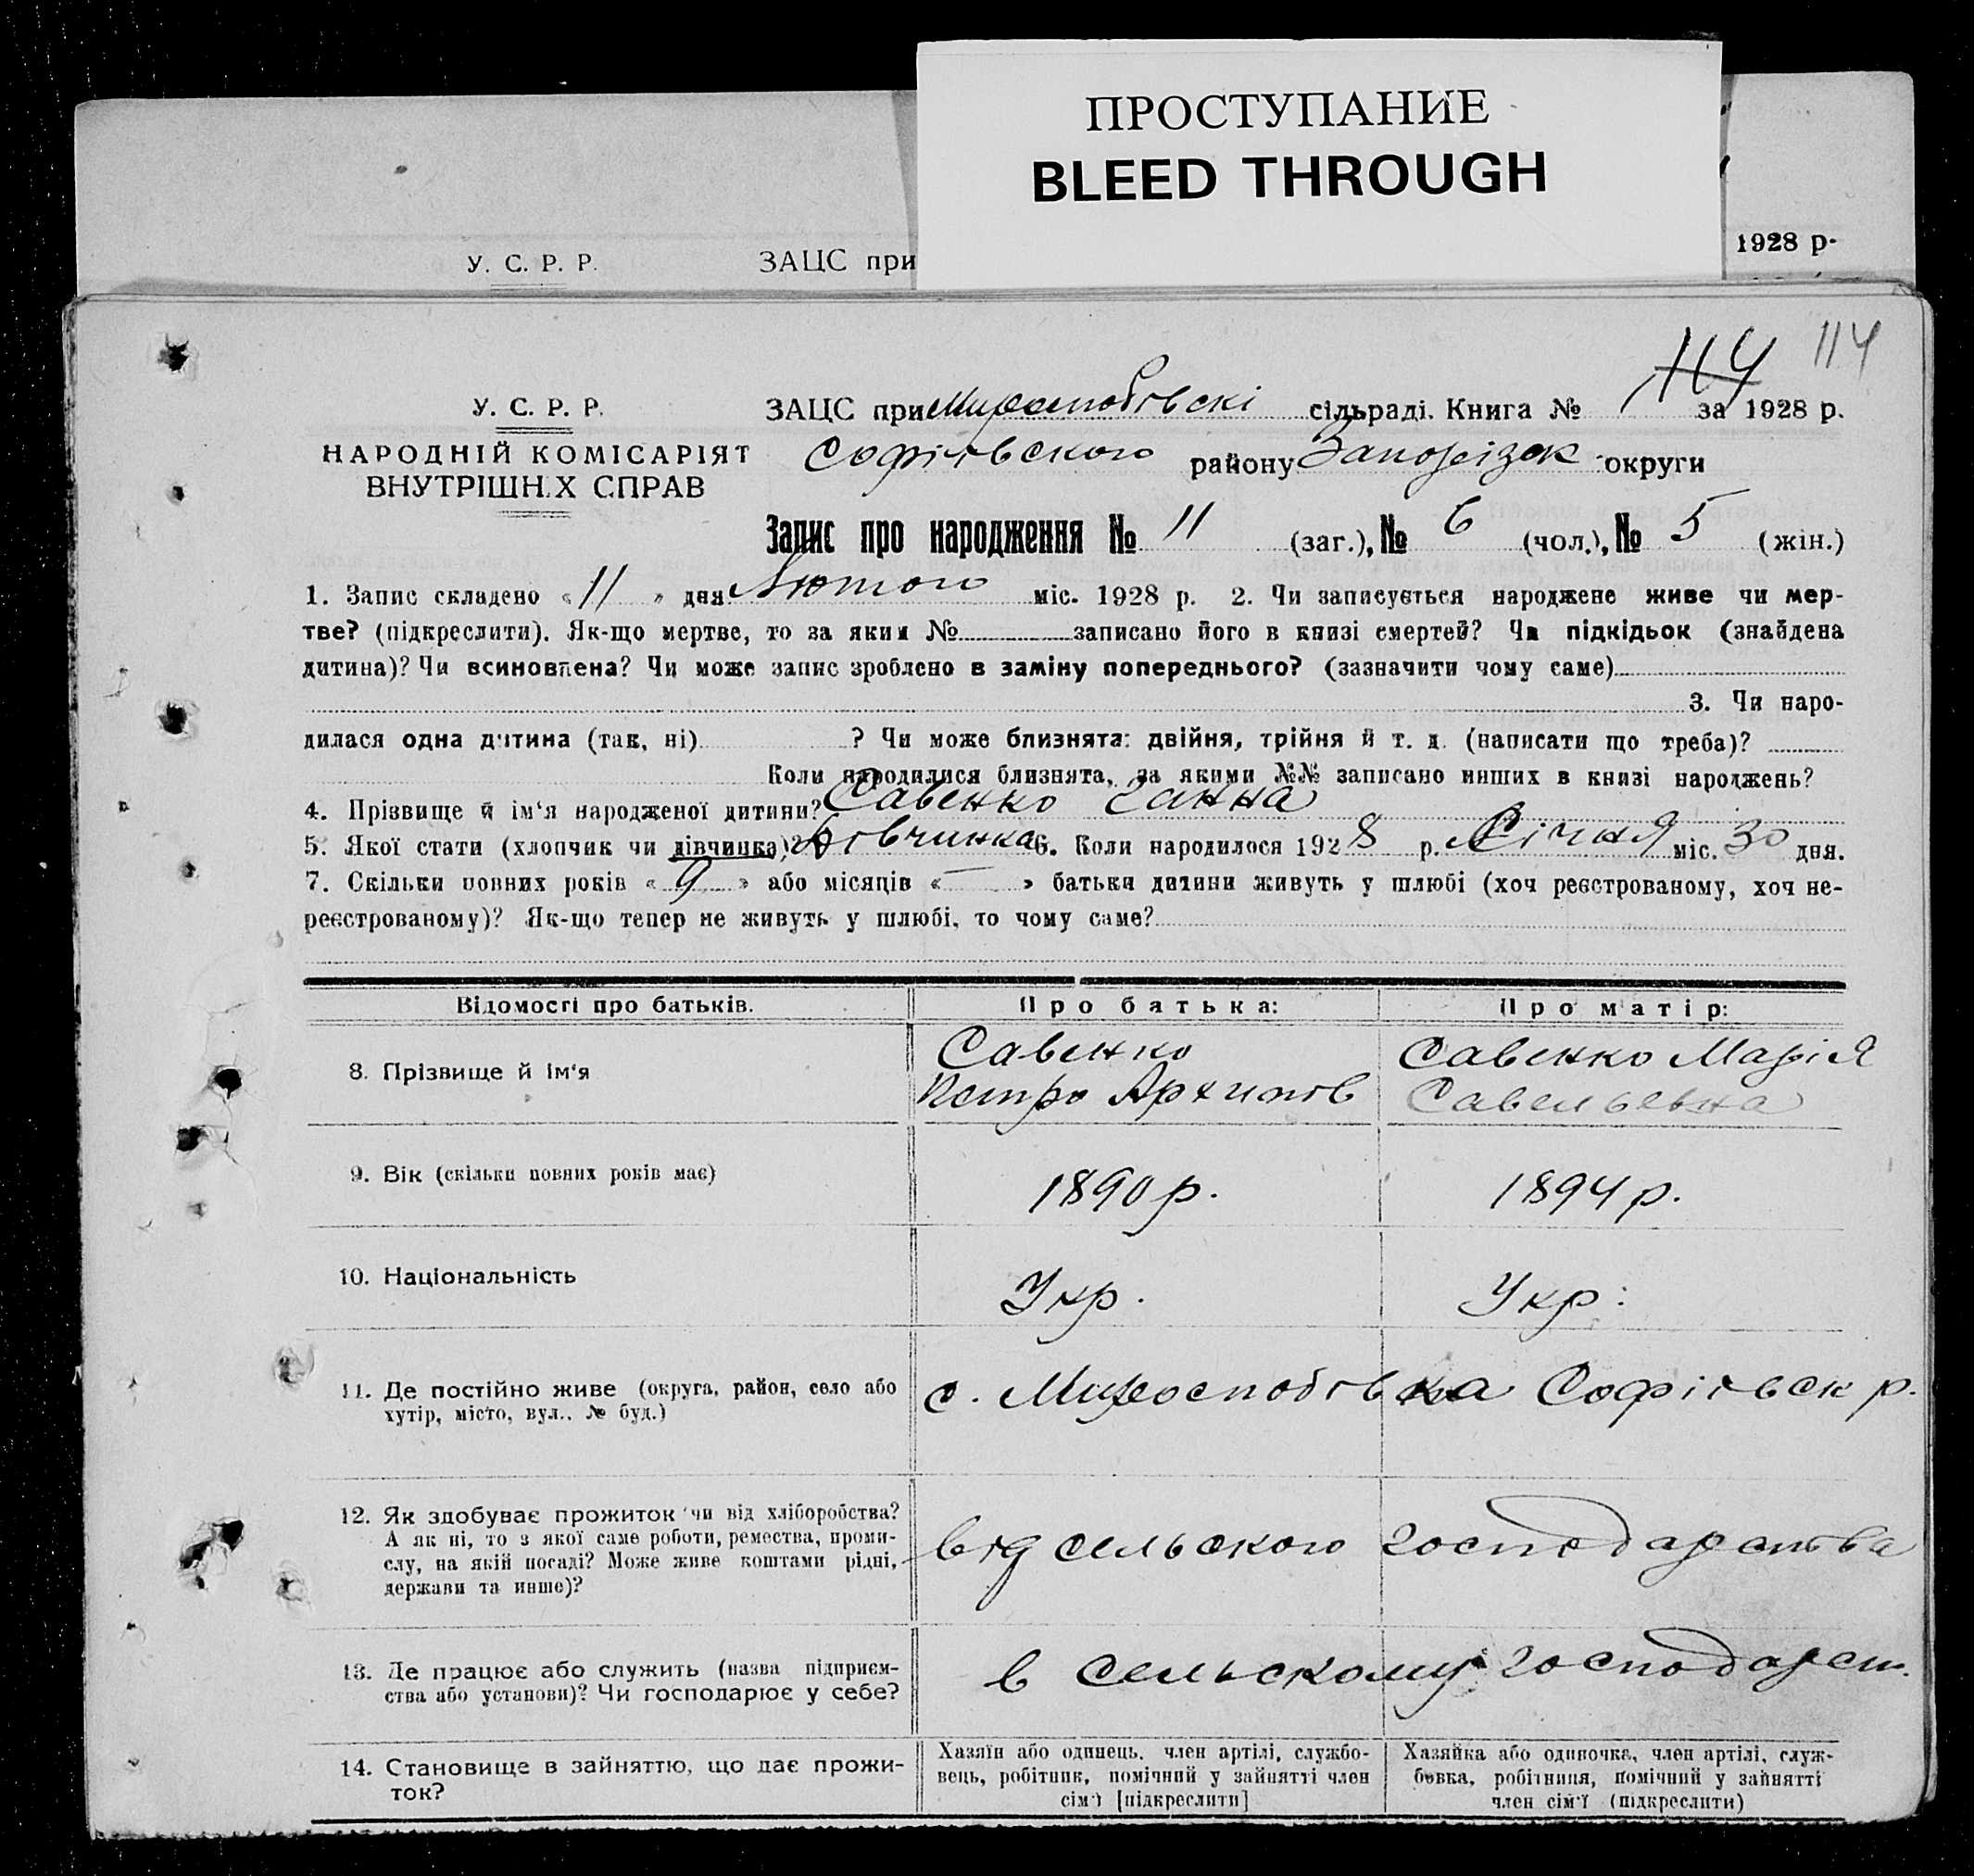 ПРОСТУПАНИЕ
BLEED THROUGH
У. С. Р. Р.
ЗАЦС при
1928 р.
114 114
У. С. Р. Р.
ЗАЦС при сільраді. Книга № за 1928 р.
НАРОДНІЙ КОМІСАРІЯТ
ВНУТРІШНІХ СПРАВ
Софіївського району Запорізьк округи
Запис про народження № 11 (заг.), № 6 (чол.), № 5 (жін.)
1. Запис складено «11» дня Лютого міс. 1928 р. 2. Чи записується народжене живе чи мер-
тве? (підкреслити). Як-що мертве, то за яким № записано його в книзі смертей? Чи підкідьок (знайдена
дитина)? Чи всиновлена? Чи може запис зроблено в заміну попереднього? (зазначити чому саме)
3. Чи наро-
дилася одна дитина (так, ні) ? Чи може близнята: двійня, трійня й т. д. (написати що треба)?
Коли народилися близнята, за якими №№ записано инших в книзі народжень?
4. Прізвище й ім‘я народженої дитини? Савенко Ганна
5. Якої стати (хлопчик чи дівчинка)? Дівчинка 6. Коли народилося 1928 р. Січня міс. 30 дня.
7. Скільки повних років «9» або місяців «—» батьки дитини живуть у шлюбі (хоч реєстрованому, хоч не-
реєстрованому)? Як-що тепер не живуть у шлюбі, то чому саме?
Відомості про батьків. Про батька: Про матір:
8. Прізвище й ім‘я
Савенко
Петро Архипів
Савенко Марія
Савельевна
9. Вік (скільки повних років має) 1890 р. 1894 р.
10. Національність Укр. Укр:
11. Де постійно живе (округа, район, село або
хутір, місто, вул.. № буд.)
с. Софіївськ р.
12. Як здобуває прожиток чи від хліборобства?
А як ні, то з якої саме роботи, ремества, проми-
слу, на якій посаді? Може живе коштами рідні,
держави та инше)?
від сельского господарства
13. Де працює або служить (назва підприєм-
ства або установи)? Чи господарює у себе?
в сельскому господарст.
14. Становище в зайняттю, що дає прожи-
ток?
Хазяїн або одинець, член артілі, службо-
вець, робітник, помічний у зайнятті член
сім‘ї [підкреслити]
Хазяйка або одиночка, член артілі, служ-
бовка, робітниця, помічний у зайнятті
член сім‘ї (підкреслити)